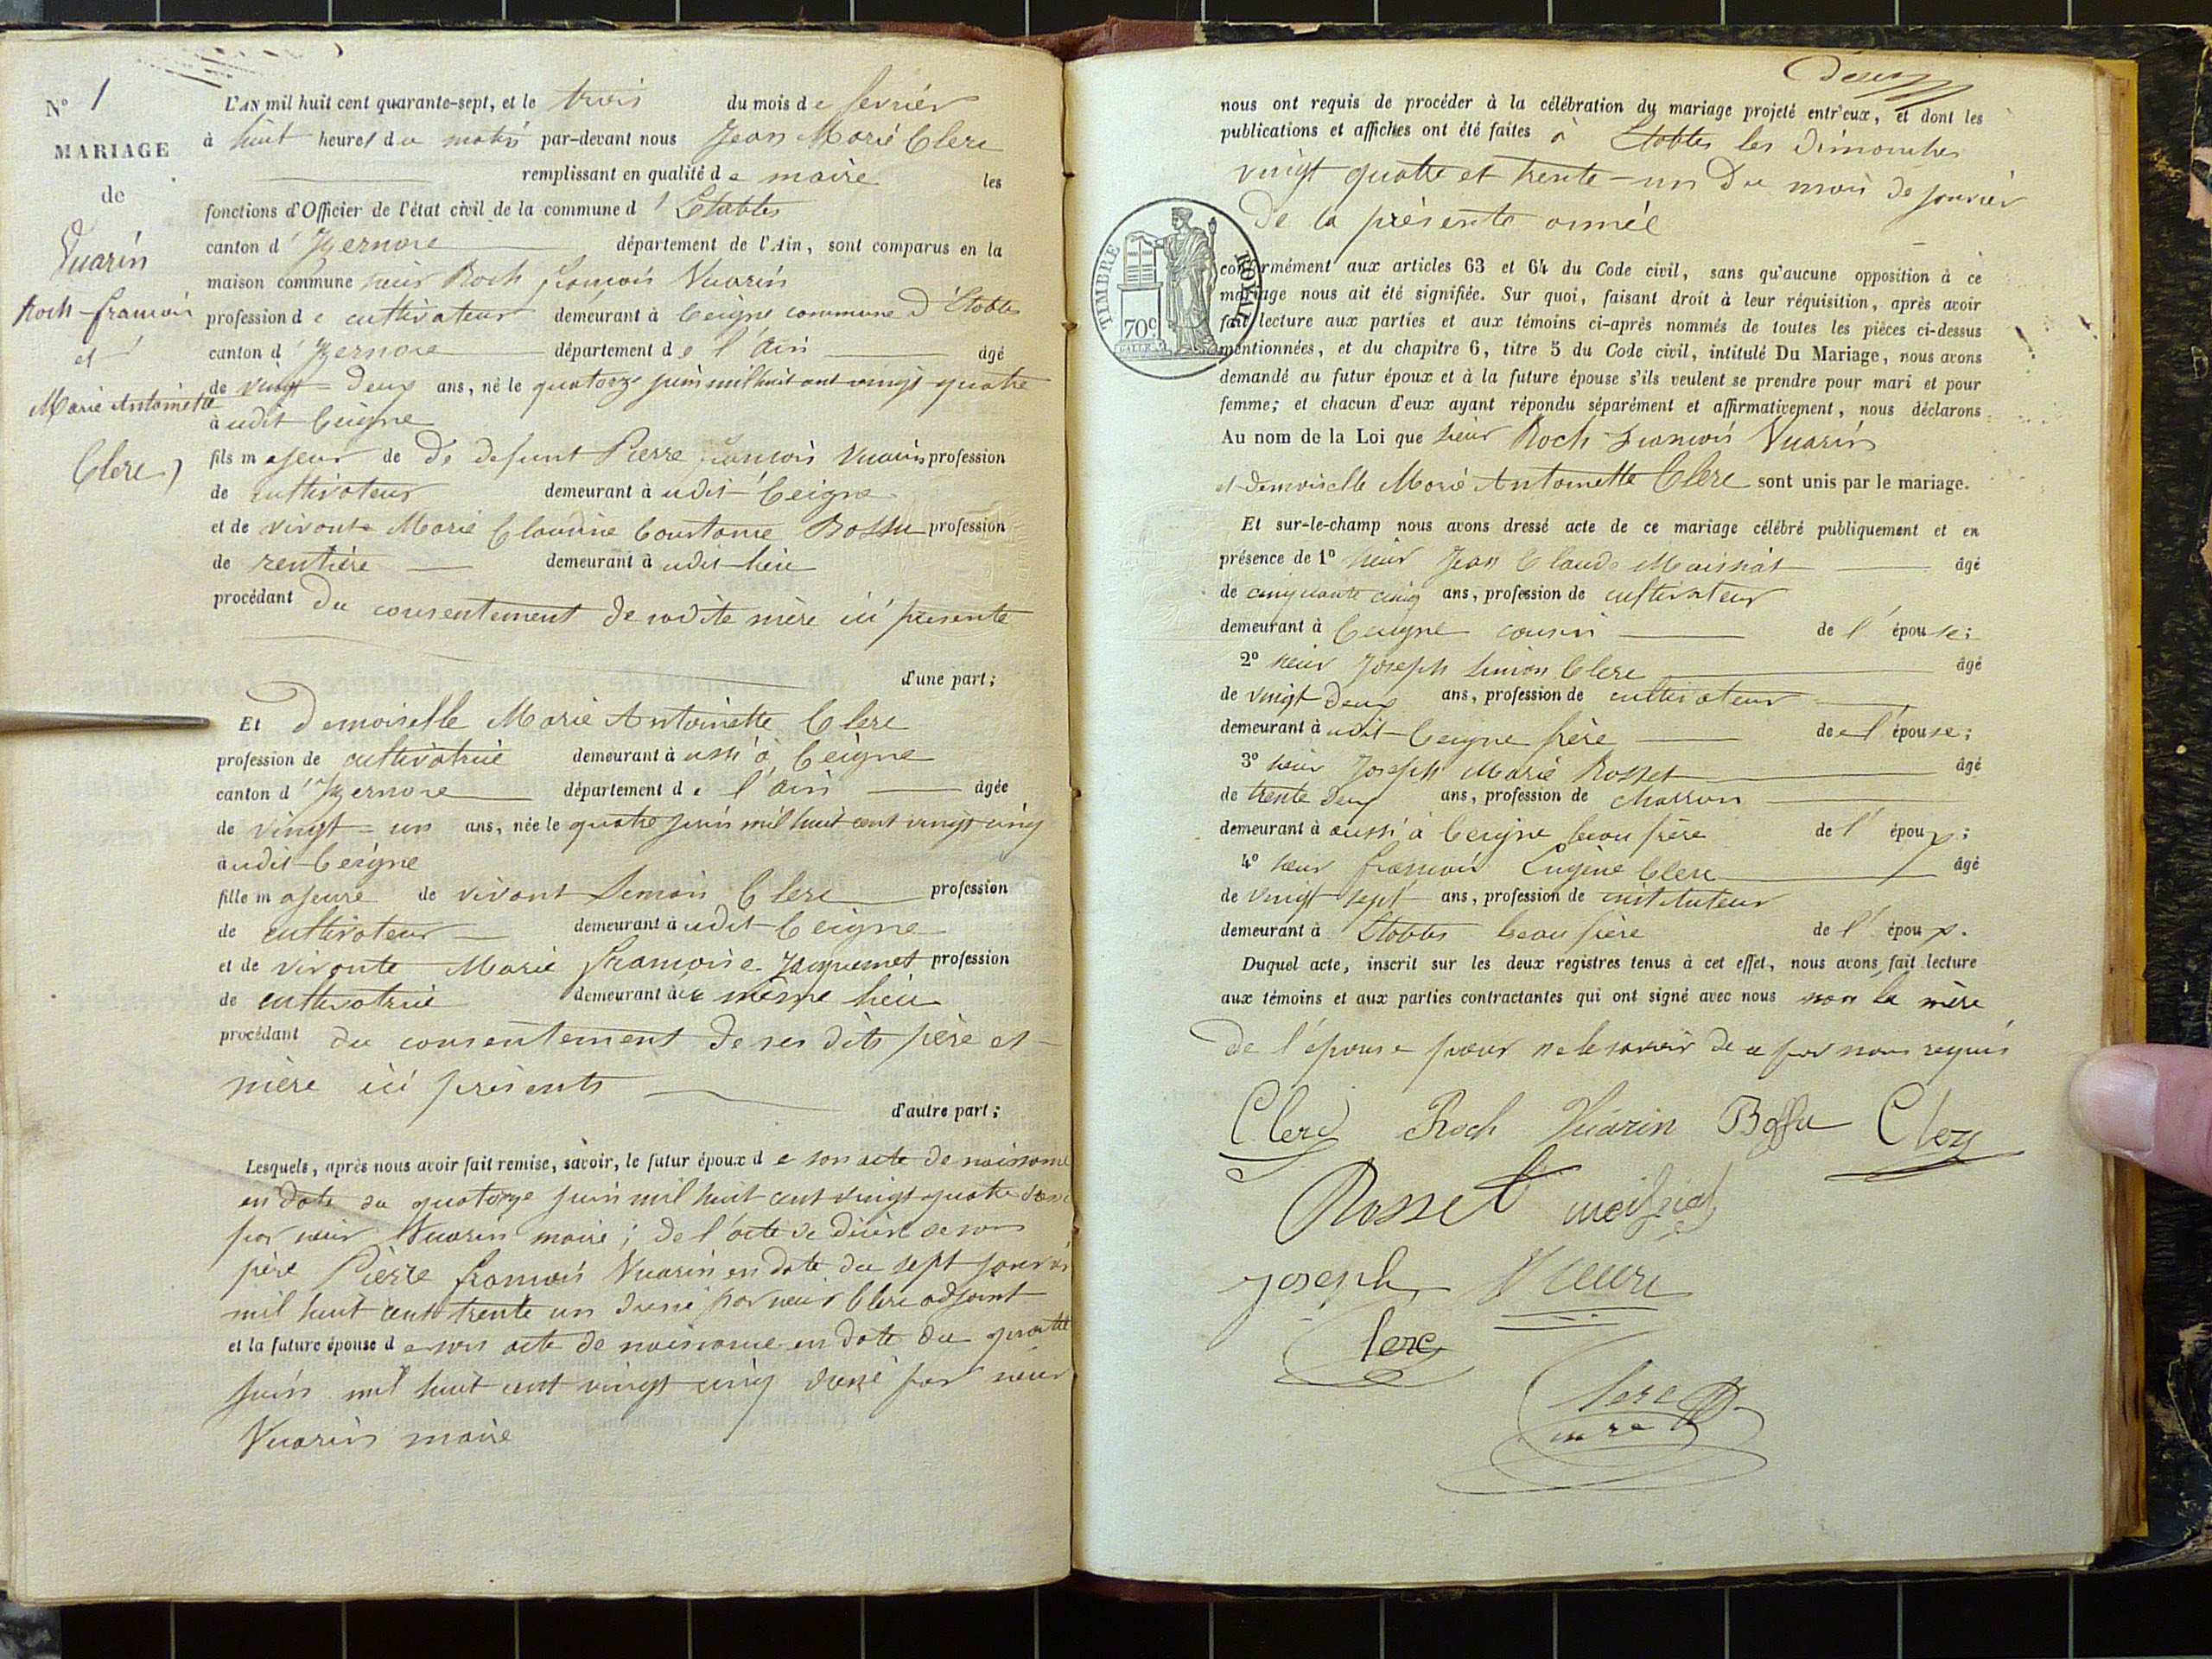 N° 1
MARIAGE
de
Vuarin
Roch-françois
et
Marie Antoinette
Clerc
L'AN mil huit cent quarante-sept, et le trois du mois de fevrier
à huit heures du matin par-devant nous Jean Marie Clerc
remplissant en qualité de maire les
fonctions d'Officier de l'état civil de la commune d'Etables
canton d'Izernore département de l'Ain, sont comparus en la
maison commune sieur Roch françois Vuarin
profession de cultivateur demeurant à Ceigne commune d'Etables
canton d'Izernore département de l'Ain âgé
de vingt-deux ans, né le quatorze juin mil huit cent vingt quatre
à udit Ceigne
fils majeur de de defunt Pierre françois Vuarin profession
de cultivateur demeurant à udit Ceigne
et de vivante Marie Claudine Constance Bossu profession
de rentière demeurant à udit lieu
procédant du consentement de sadite mère ici presente
d'une part;
Et Demoiselle Marie Antoinette Clerc
profession de cultivatrice demeurant à ussi à Ceigne
canton d'Izernore département de l'Ain âgée
de vingt-un ans, née le quatre juin mil huit cent vingt cinq
à udit Ceigne
fille majeure de vivant Simon Clerc profession
de cultivateur demeurant à udit Ceigne
et de vivante Marie françoise Jacquemet profession
de cultivatrice demeurant au même lieu
procédant du consentement de ses dits père et
mère ici présents
d'autre part;
Lesquels, après nous avoir fait remise, savoir, le futur époux de son acte de naissance
en date du quatorze juin mil huit cent vingt quatre dressé
par sieur Vuarin maire; de l'acte de décès de son
père Pierre françois Vuarin en date du sept janvier
mil huit cent trente un dressé par sieur Clerc adjoint
et la future épouse de son acte de naissance en date du quatre
juin mil huit cent vingt cinq dressé par sieur
Vuarin maire
deux
nous ont requis de procéder à la célébration du mariage projeté entr'eux, et dont les
publications et affiches ont été faites à Etables les dimanches
vingt quatre et trente-un du mois de janvier
de la présente année
TIMBRE ROYAL
70c
conformément aux articles 63 et 64 du Code civil, sans qu'aucune opposition à ce
mariage nous ait été signifiée. Sur quoi, faisant droit à leur réquisition, après avoir
fait lecture aux parties et aux témoins ci-après nommés de toutes les pièces ci-dessus
mentionnées, et du chapitre 6, titre 5 du Code civil, intitulé Du Mariage, nous avons
demandé au futur époux et à la future épouse s'ils veulent se prendre pour mari et pour
femme; et chacun d'eux ayant répondu séparément et affirmativement, nous déclarons
Au nom de la Loi que sieur Roch françois Vuarin
et demoiselle Marie Antoinette Clerc sont unis par le mariage.
Et sur-le-champ nous avons dressé acte de ce mariage célébré publiquement et en
présence de 1° sieur Jean Claude Maissiat âgé
de cinquante cinq ans, profession de cultivateur
demeurant à Ceigne cousin de l'épouse;
2° sieur Joseph Simon Clerc âgé
de vingt deux ans, profession de cultivateur
demeurant à udit Ceigne frère de l'épouse;
3° sieur Joseph Marie Rosset âgé
de trente deux ans, profession de charron
demeurant à aussi à Ceigne beau frère de l'époux;
4° sieur françois Eugène Clerc âgé
de vingt sept ans, profession de instituteur
demeurant à Etables beau frère de l'époux.
Duquel acte, inscrit sur les deux registres tenus à cet effet, nous avons fait lecture
aux témoins et aux parties contractantes qui ont signé avec nous non la mère
de l'épouse pour ne le savoir de ce par nous requis
Clerc Roch Vuarin Bossu Clerc
Rosset meissiat
Joseph
Clerc
Clerc
mre